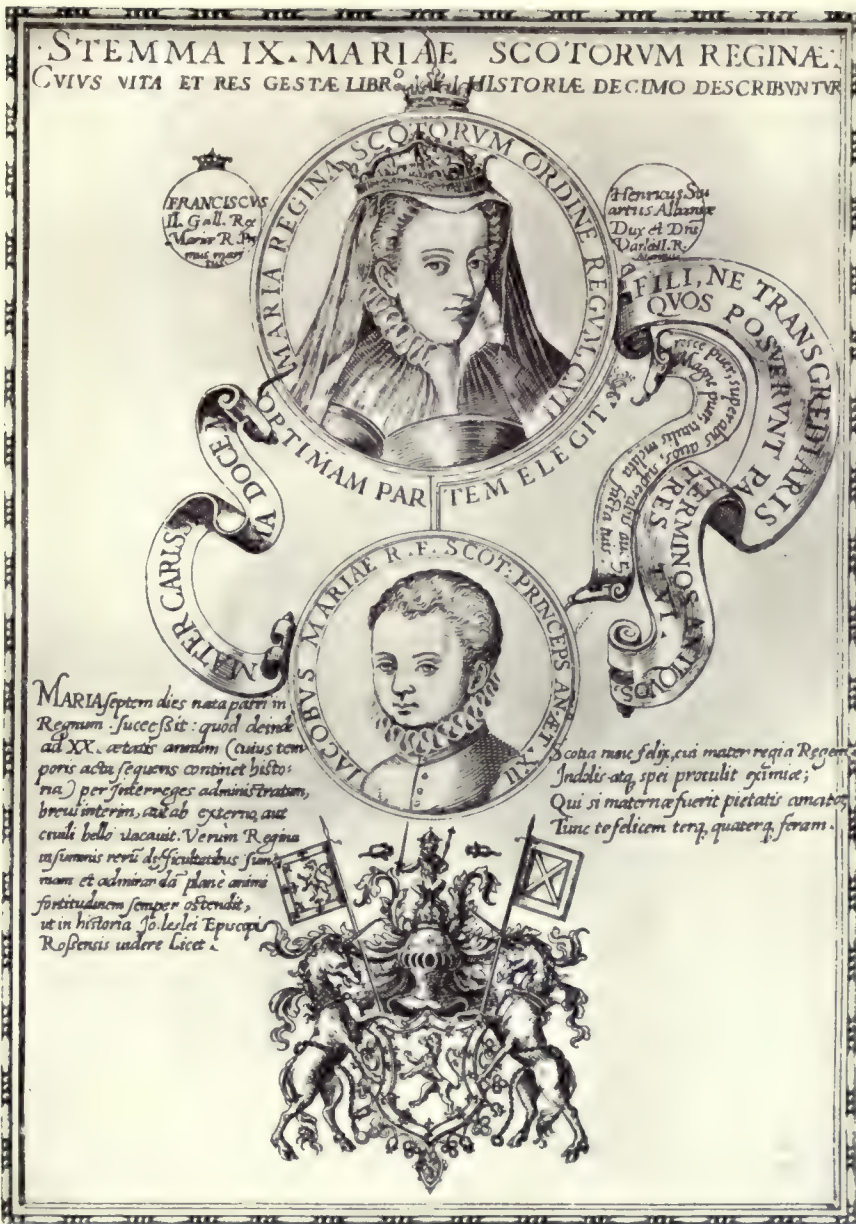 STEMMA IX. MARIAE SCOTORVM REGINÆ.
CVIVS VITA ET RES GESTÆ LIBRº HISTORIÆ DECIMO DESCRIBVNTVR
MARIA REGINA SCOTORVM ORDINE REGVM, CVII
FRANCISCVS
II. Gall. Rex
Mariæ R. Pri
mus mari
tus
Henricus Stu
artus Albaniæ
Dux et Dns
Darleii. R.
OPTIMAM PARTEM ELEGIT
FILI, NE TRANSGREDIARIS
TERMINOS ANTIQVOS,
QVOS POSVERVNT PA
TRES TVI.
puer, superabis avos,
Magne puer,
MATER CARISS
DOCE
IACOBVS MARIAE R. F. SCOT. PRINCEPS AN. ÆT. XII
MARIA septem dies nata patri in
Regnum succeßit: quod deinde
ad XX. ætatis annum (cuius tem
poris acta sequens continet histo-
ria) per Interreges administratum,
brevi interim, aut ab externo, aut
civili bello vacavit. Verùm Regina
in summis rerū difficultatibus sum
mam et admirandā planè animi
fortitudinem semper ostendit,
ut in historia Jo. Leslei Episcopi
Roßensis videre Licet.
Scotia nunc felix, cui mater regia Regem
Indolis atq, spei protulit eximiæ;
Qui si maternæ fuerit pietatis
Tunc te felicem terq, quaterq, feram.